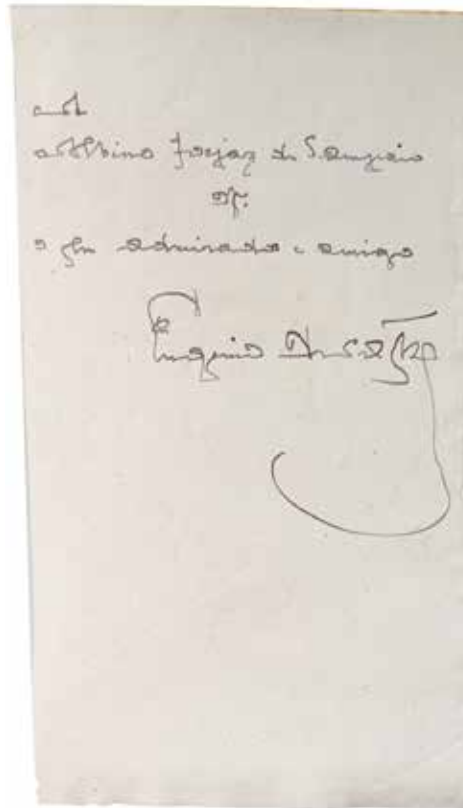 A
Albino Forjaz de Sampaio
of.
o seu admirador e amigo
Eugenio de Castro